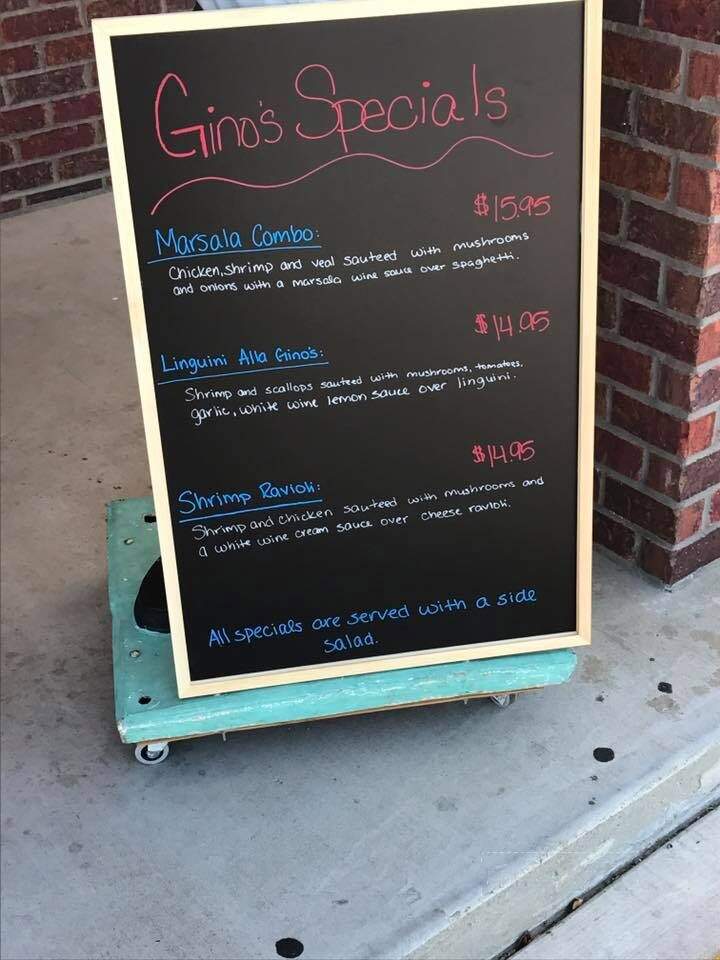 Gino's Specials
$15.95
Marsala Combo:
Chicken, shrimp and veal sauteed with mushrooms
and onions with a marsala wine sauce over spaghetti.
$14.95
Linguini Alla Gino's:
Shrimp and scallops sauteed with mushrooms, tomatoes,
garlic, white wine lemon sauce over linguini.
$14.95
Shrimp Ravioli:
Shrimp and chicken sauteed with mushrooms and
a white wine cream sauce over cheese ravioli.
All specials are served with a side
salad.